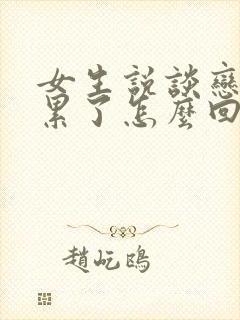 女生說談戀
累了怎麼回
趙屹鴎